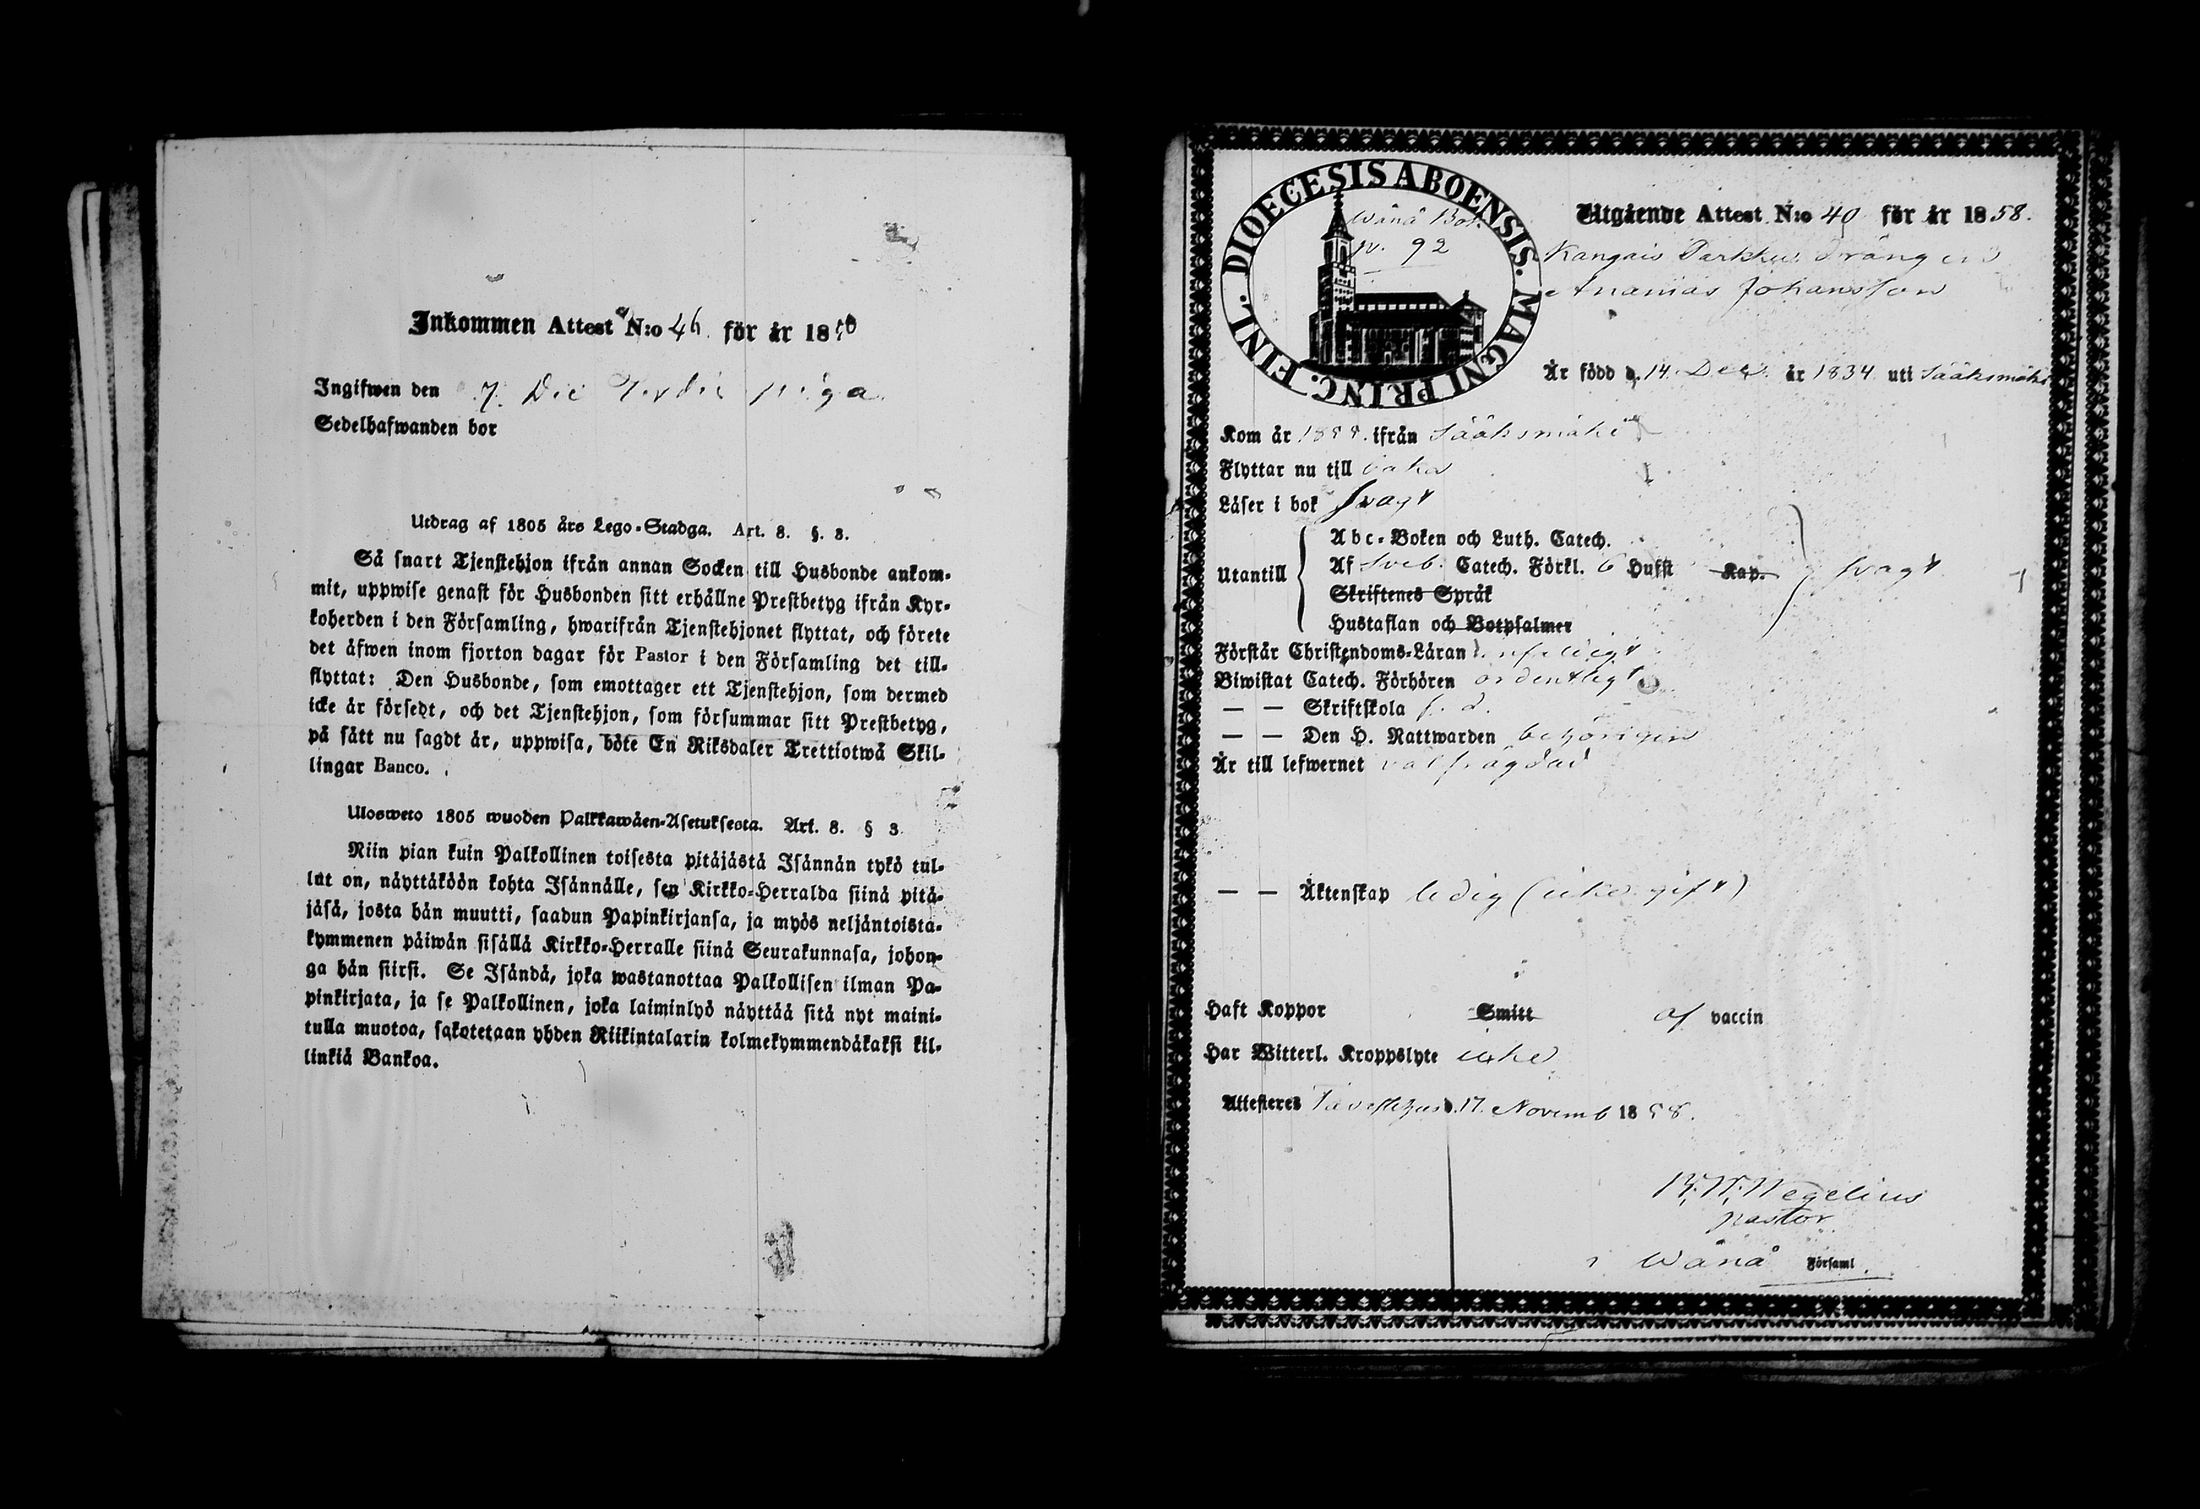 Inkommen Attest N:o 46 för år 18
Ingifwen den 7 Dec
Sedelhafwanden bor
Utdrag af 1805 års Lego-Stadga. Art. 8. §. 3.
Så snart Tjenstehjon ifrån annan Socken till Husbonde ankom-
mit, uppwise genast för Husbonden sitt erhållne Prestbetyg ifrån Kyr-
koherden i den Församling, hwarifrån Tjenstehjonet flyttat, och förete
det äfwen inom fjorton dagar för Pastor i den Församling det till-
flyttat: Den Husbonde, som emottager ett Tjenstehjon, som dermed
icke är försedt, och det Tjenstehjon, som försummar sitt Prestbetyg,
på sätt nu sagdt är, uppwisa, böte En Riksdaler Trettiotwå Skil-
lingar Banco.
Ulosweto 1805 wuoden Palkkawäen-Asetuksesta. Art. 8. § 3
Niin pian kuin Palkollinen toisesta pitäjästä Isännän tykö tul-
lut on, näyttäköön kohta Isännälle, sen Kirkko-Herralda siinä pitä-
jäsä, josta hän muutti, saadun Papinkirjansa, ja myös neljäntoista-
kymmenen päiwän sisällä Kirkko-Herralle siinä Seurakunnasa, johon-
ga hän siirsi. Se Isändä, joka wastanottaa Palkollisen ilman Pa-
pinkirjata, ja se Palkollinen, joka laiminlyö näyttää sitä nyt maini-
tulla muotoa, sakotetaan yhden Riikintalarin kolmekymmendäkaksi kil-
linkiä Bankoa.
DIOECESIS ABOENSIS. MAGNI PRINC. FINL.
Wånå Bok
92
Utgående Attest N:o 40 för år 1858.
Kangais Parkku drängen
Ananias Johansson
Är född d. 14 Dec. år 1834 uti Sääksmäki
Kom år ifrån Sääksmäki
Flyttar nu till
Läser i bok svagt
Abc-Boken och Luth. Catech.
Utantill Af Sveb. Catech. Förkl. 6 Hufst Kap. svagt
Skriftenes Språk
Hustaflan och Botpsalmer
Förstår Christendoms-Läran
Biwistat Catech. Förhören ordentligt
— — Skriftskola s. d.
— — Den H. Nattwarden behörigen
Är till lefwernet välfrägdad
— — Äktenskap ledig (icke gift)
Haft Koppor Smitt af vaccin
Har Witterl. Kroppslyte icke
Attesteres Tavastehus d. 17. Novemb 1858.
Wegelius
pastor
i Wånå Församl.